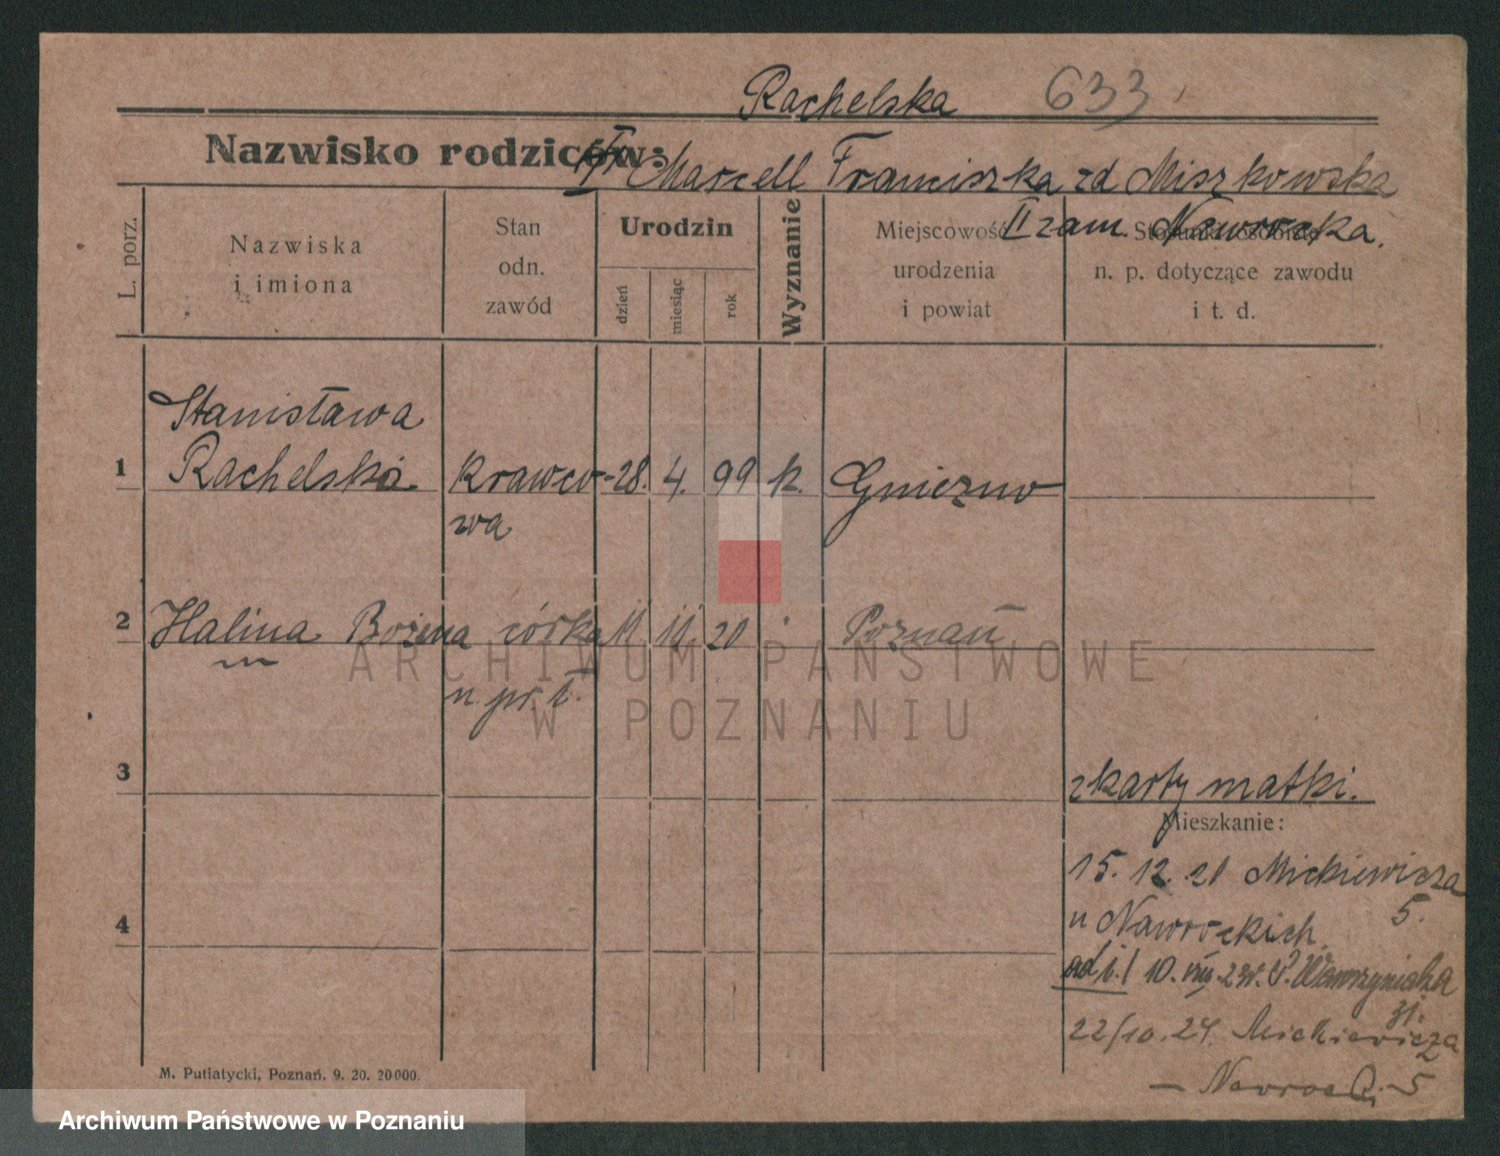 Rachelska 633
Nazwisko rodziców:
Marcell Franciszka zd Miszkowska
II zam. Nawrocka.
L. porz.
Nazwiska
i imiona
Stan
odn.
zawód
Urodzin
dzień
miesiąc
rok
Wyznanie
Miejscowość
urodzenia
i powiat
n. p. dotyczące zawodu
i t. d.
Stanisława
1 Rachelska krawco- 28. 4. 99 k. Gniezno
wa
2 Halina Bożena córka 11 11 20 Poznań
n. pr. ł.
3
z karty matki.
Mieszkanie:
15. 12. 21 Mickiewicza
5.
u Nawrockich
4
ad 1.) 10. VIII. 23 Wawrzyniaka
31.
22/10. 24. Mickiewicza
5
M. Putiatycki, Poznań. 9. 20. 20000.
ARCHIWUM PAŃSTWOWE
W POZNANIU
Archiwum Państwowe w Poznaniu